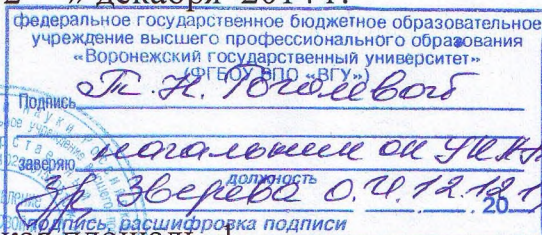 декабря 2014 г.
федеральное государственное бюджетное образовательное
учреждение высшего профессионального образования
«Воронежский государственный университет»
(ФГБОУ ВПО «ВГУ»)
Подпись Т.Н. Гоголевой
заверяю начальник
должность
Зверева О.И. 12.12.1
20
подпись, расшифровка подписи
площадь, 1